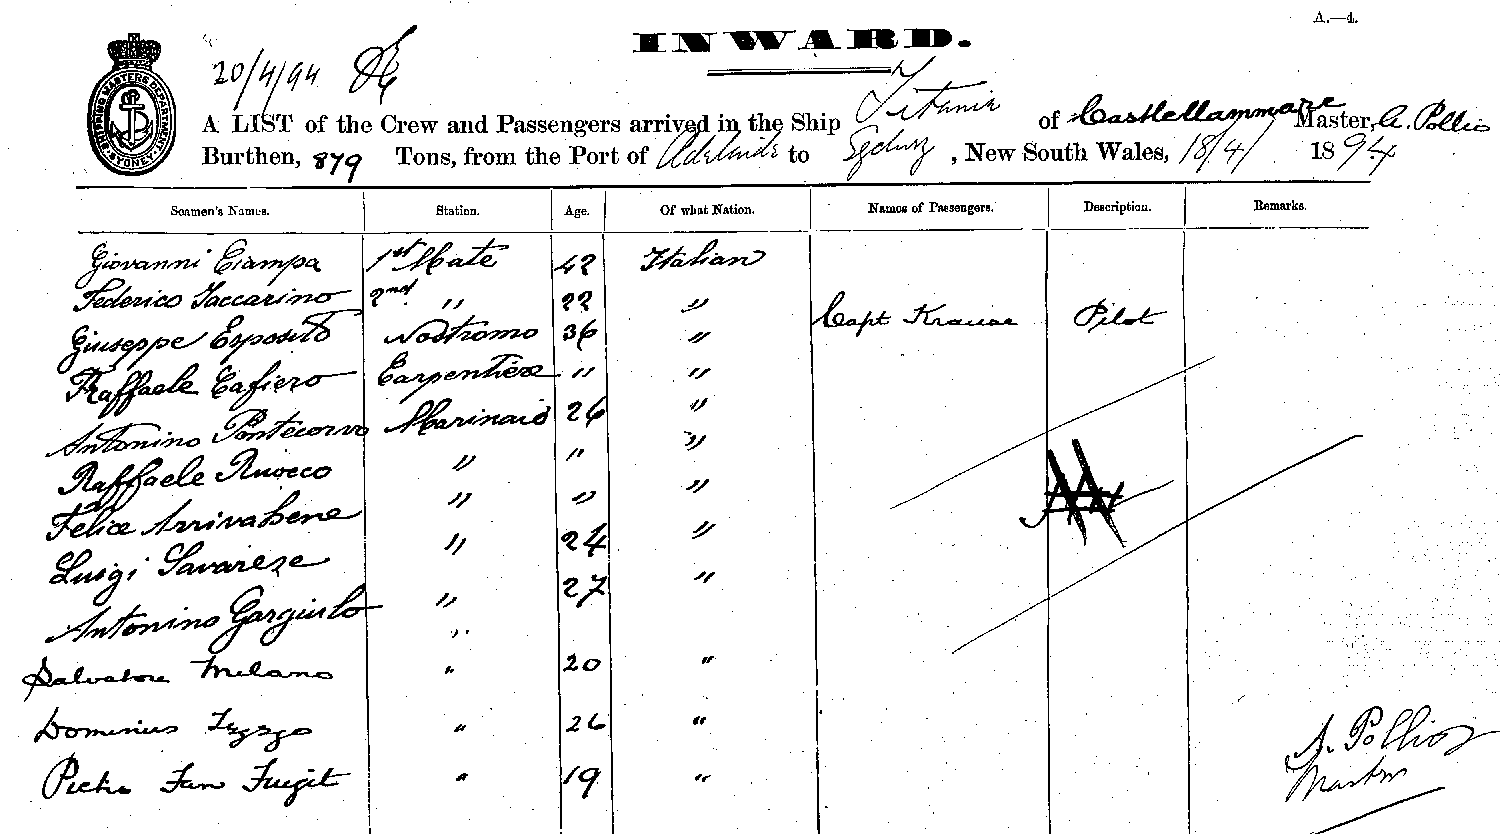 A.—4.
INWARD.
20/4/94
SHIPPING MASTERS DEPARTMENT SYDNEY
A LIST of the Crew and Passengers arrived in the Ship Titania of Castellammare Master, A. Pollio
Burthen, 879 Tons, from the Port of Adelaide to Sydney, New South Wales, 18/4/ 1894
Seamen's Names. Station. Age. Of what Nation. Names of Passengers. Description. Remarks.
Giovanni Ciampa 1st Mate 42 Italian
Federico Iaccarino 2nd " 22 "
Capt Krause Pilot
Giuseppe Esposito Nostromo 36 "
Raffaele Cafiero Carpentiere " "
Antonino Pontecorvo Marinaio 26 "
Raffaele Ruocco " " "
Felice Arrivabene " " "
Luigi Savarese " 24 "
Antonino Gargiulo " 27 "
Salvatore Milano " 20 "
Dominius " 26 "
Pietro San " 19 "
A. Pollio
Master